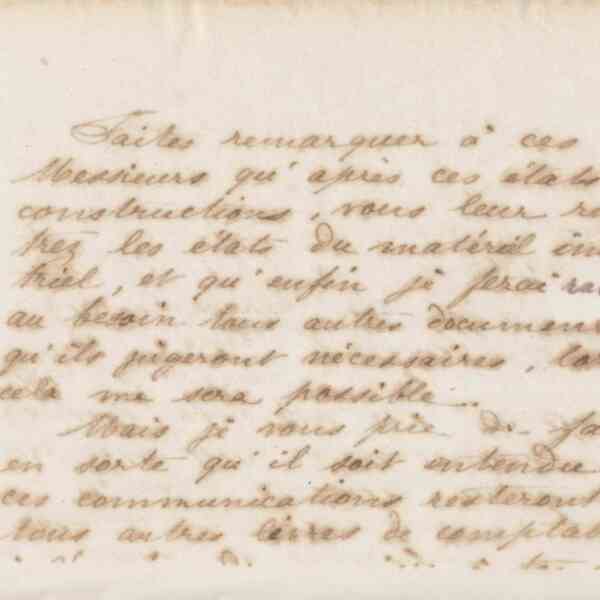 Faites remarquer à ces
Messieurs qu'après ces états
constructions, vous leur re
trez les états du matériel in
triel, et qu'enfin je ferai
au besoin tous autres documen
qu'ils jugeront nécessaires,
cela me sera possible.
Mais je vous prie de fa
en sorte qu'il soit entendu
ces communications resteront
tous autres livres de comptab